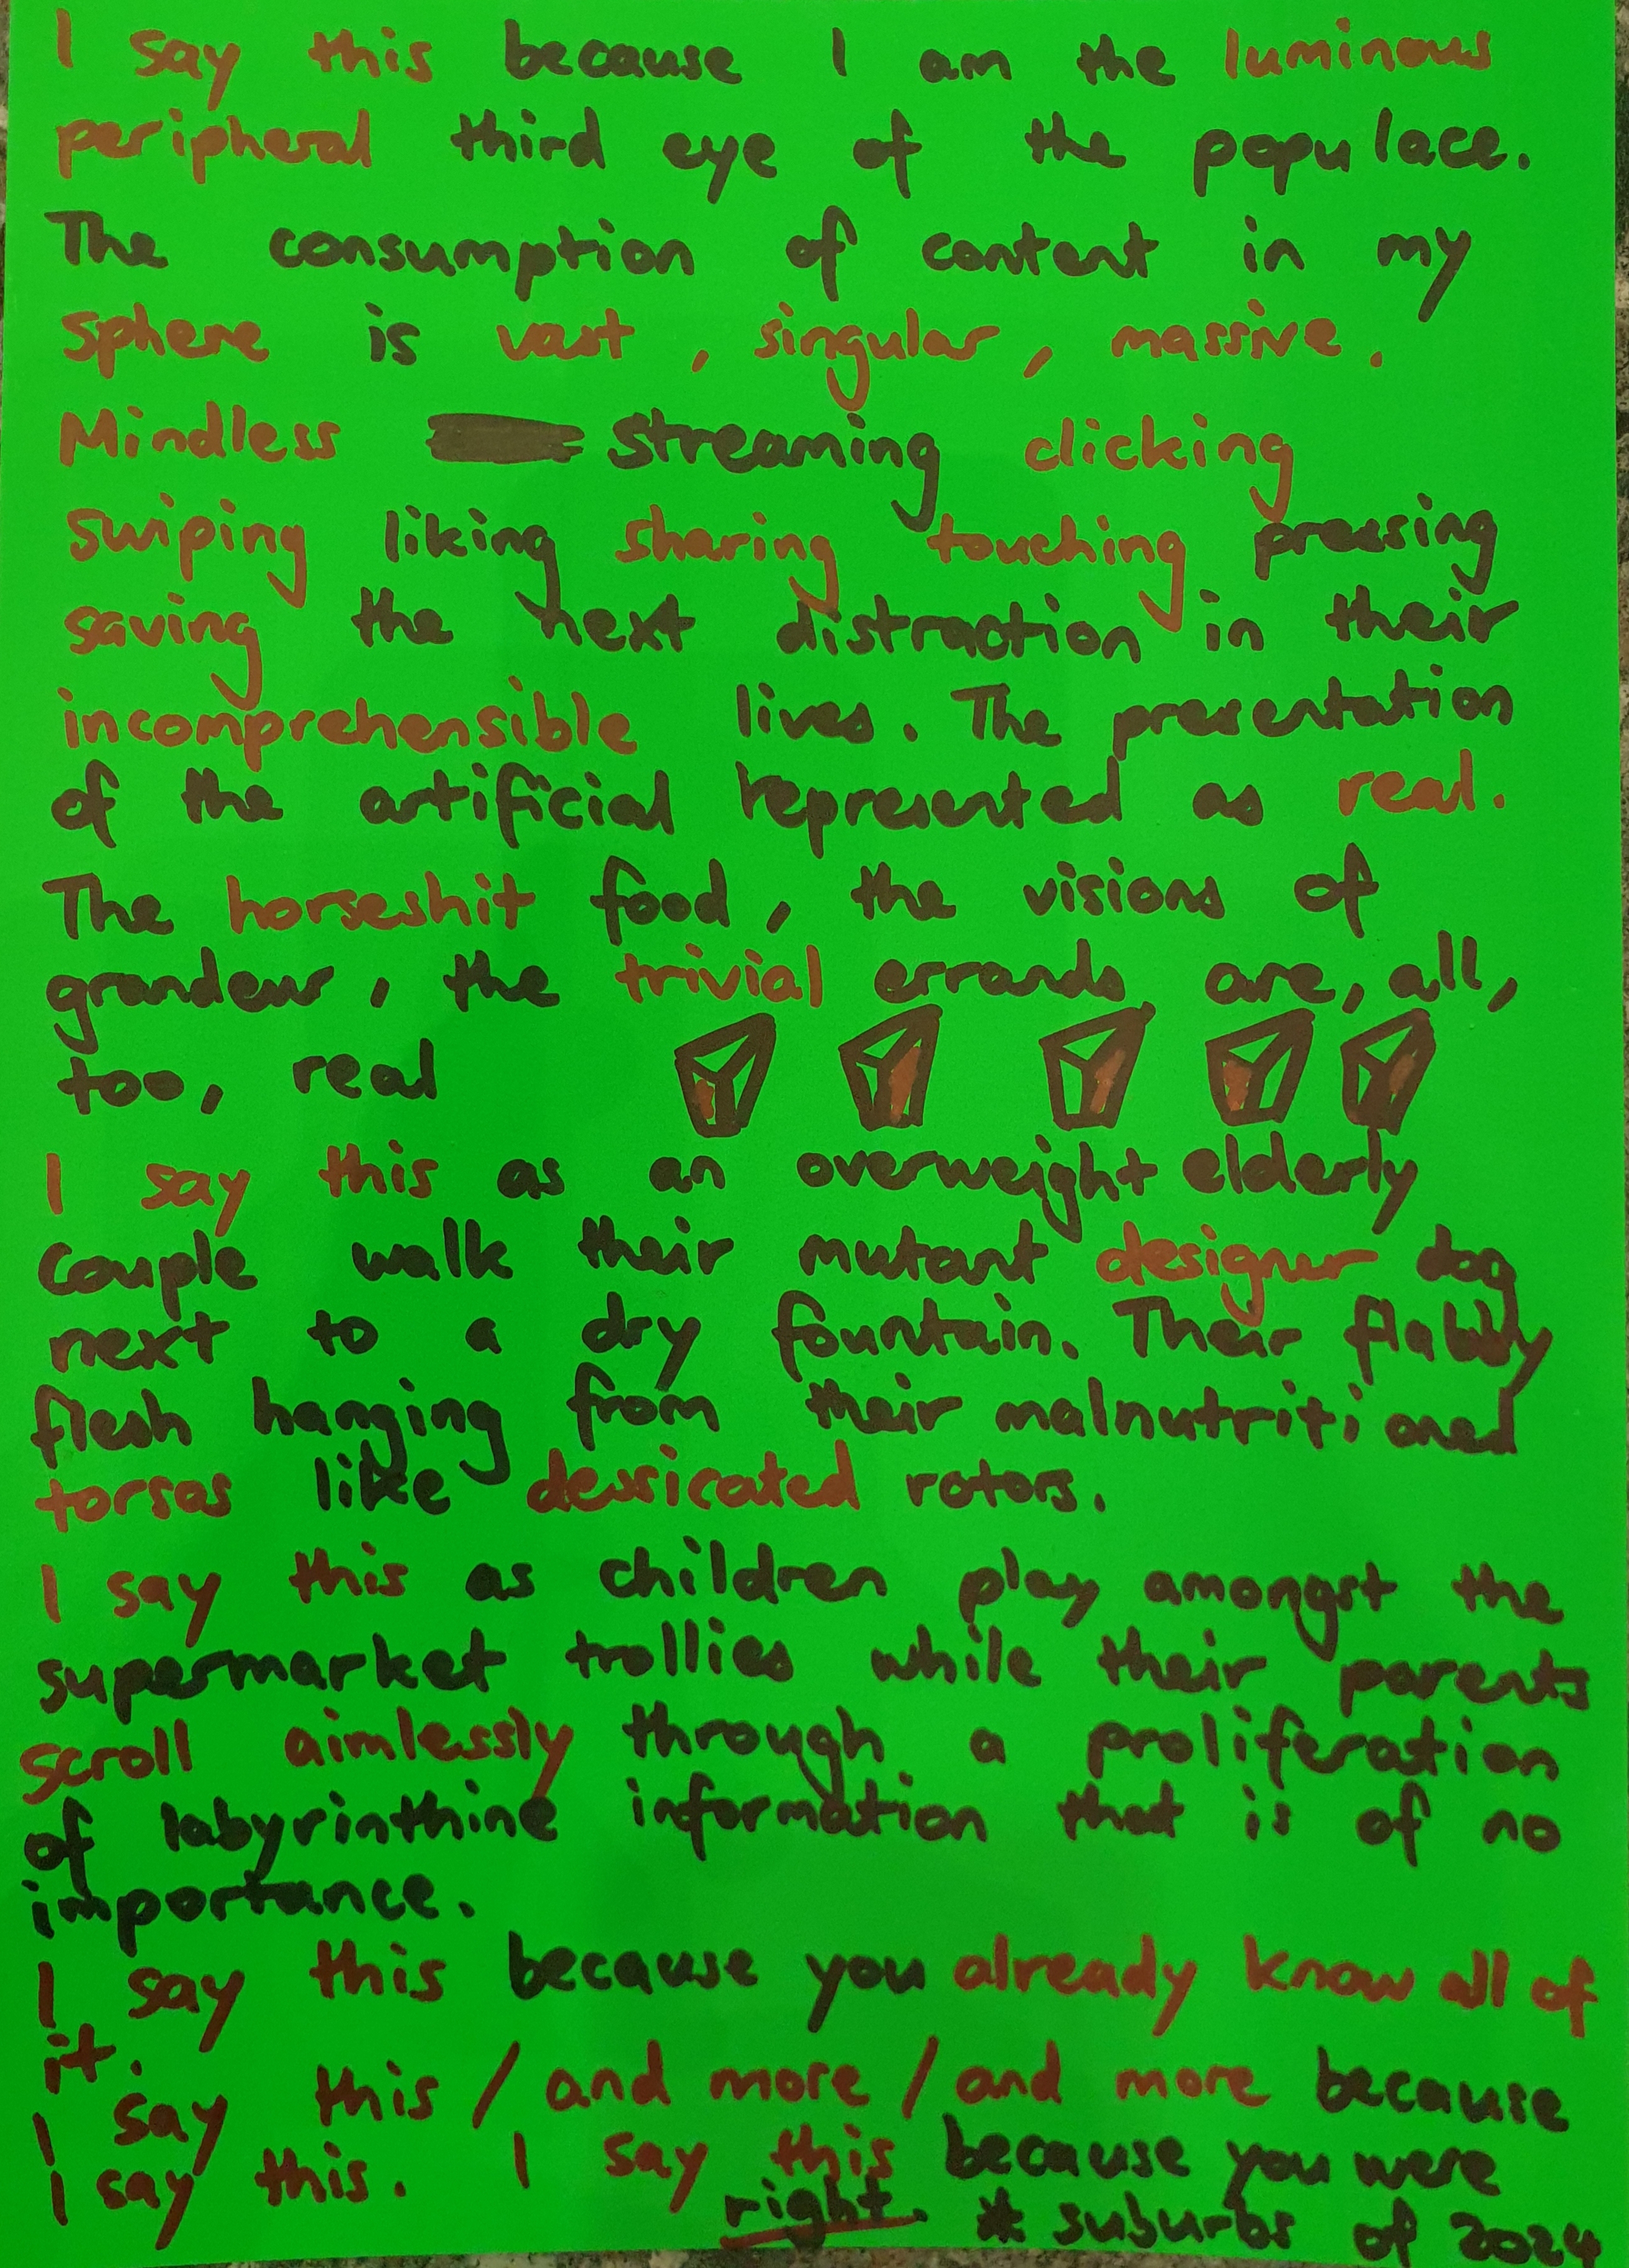 I say this because I am the luminous
peripheral third eye of the populace.
The consumption of content in my
sphere is vast, singular, massive.
Mindless streaming clicking
swiping liking sharing touching pressing
saving the next distraction in their
incomprehensible lives. The presentation
of the artificial represented as real.
The horseshit food, the visions of
grandeur, the trivial errands, are, all,
too, real
I say this as an overweight elderly
couple walk their mutant designer dog
next to a dry fountain. Their flabby
flesh hanging from their malnutritioned
torsos like dessicated rotors.
I say this as children play amongst the
supermarket trollies while their parents
scroll aimlessly through a proliferation
of labyrinthine information that is of no
importance.
I say this because you already know all of
it.
I say this / and more / and more because
I say this. I say this because you were
right. * suburbs of 2024